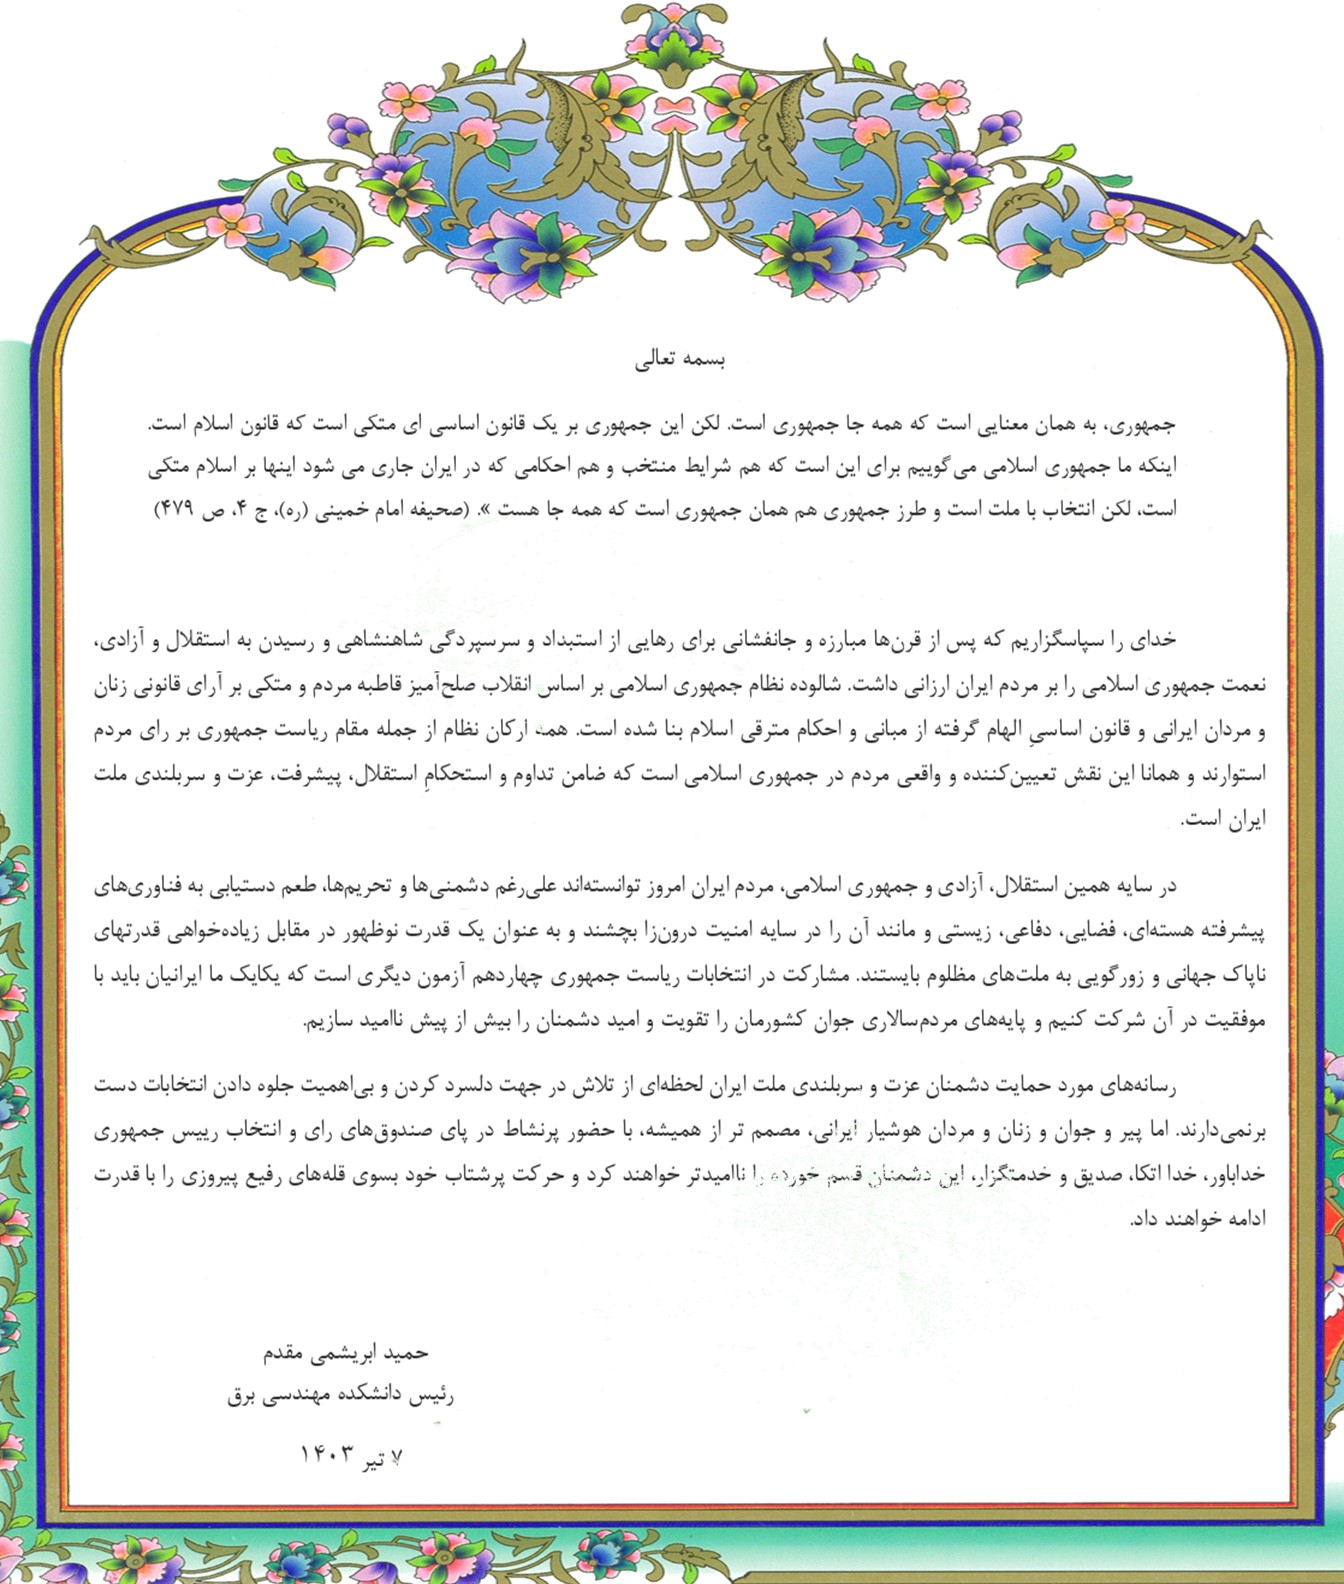 بسمه تعالی
جمهوری، به همان معنایی است که همه جا جمهوری است. لکن این جمهوری بر یک قانون اساسی ای متکی است که قانون اسلام است.
اینکه ما جمهوری اسلامی می‌گوییم برای این است که هم شرایط منتخب و هم احکامی که در ایران جاری می شود اینها بر اسلام متکی
است، لکن انتخاب با ملت است و طرز جمهوری هم همان جمهوری است که همه جا هست ». (صحیفه امام خمینی (ره)، ج ۴، ص ۴۷۹)
خدای را سپاسگزاریم که پس از قرن‌ها مبارزه و جانفشانی برای رهایی از استبداد و سرسپردگی شاهنشاهی و رسیدن به استقلال و آزادی،
نعمت جمهوری اسلامی را بر مردم ایران ارزانی داشت. شالوده نظام جمهوری اسلامی بر اساس انقلاب صلح‌آمیز قاطبه مردم و متکی بر آرای قانونی زنان
و مردان ایرانی و قانون اساسیِ الهام گرفته از مبانی و احکام مترقی اسلام بنا شده است. همه ارکان نظام از جمله مقام ریاست جمهوری بر رای مردم
استوارند و همانا این نقش تعیین‌کننده و واقعی مردم در جمهوری اسلامی است که ضامن تداوم و استحکامِ استقلال، پیشرفت، عزت و سربلندی ملت
ایران است.
در سایه همین استقلال، آزادی و جمهوری اسلامی، مردم ایران امروز توانسته‌اند علی‌رغم دشمنی‌ها و تحریم‌ها، طعم دستیابی به فناوری‌های
پیشرفته هسته‌ای، فضایی، دفاعی، زیستی و مانند آن را در سایه امنیت درون‌زا بچشند و به عنوان یک قدرت نوظهور در مقابل زیاده‌خواهی قدرتهای
ناپاک جهانی و زورگویی به ملت‌های مظلوم بایستند. مشارکت در انتخابات ریاست جمهوری چهاردهم آزمون دیگری است که یکایک ما ایرانیان باید با
موفقیت در آن شرکت کنیم و پایه‌های مردم‌سالاری جوان کشورمان را تقویت و امید دشمنان را بیش از پیش ناامید سازیم.
رسانه‌های مورد حمایت دشمنان عزت و سربلندی ملت ایران لحظه‌ای از تلاش در جهت دلسرد کردن و بی‌اهمیت جلوه دادن انتخابات دست
برنمی‌دارند. اما پیر و جوان و زنان و مردان هوشیار ایرانی، مصمم تر از همیشه، با حضور پرنشاط در پای صندوق‌های رای و انتخاب رییس جمهوری
خداباور، خدا اتکا، صدیق و خدمتگزار، این دشمنان قسم خورده را ناامیدتر خواهند کرد و حرکت پرشتاب خود بسوی قله‌های رفیع پیروزی را با قدرت
ادامه خواهند داد.
حمید ابریشمی مقدم
رئیس دانشکده مهندسی برق
۷ تیر ۱۴۰۳